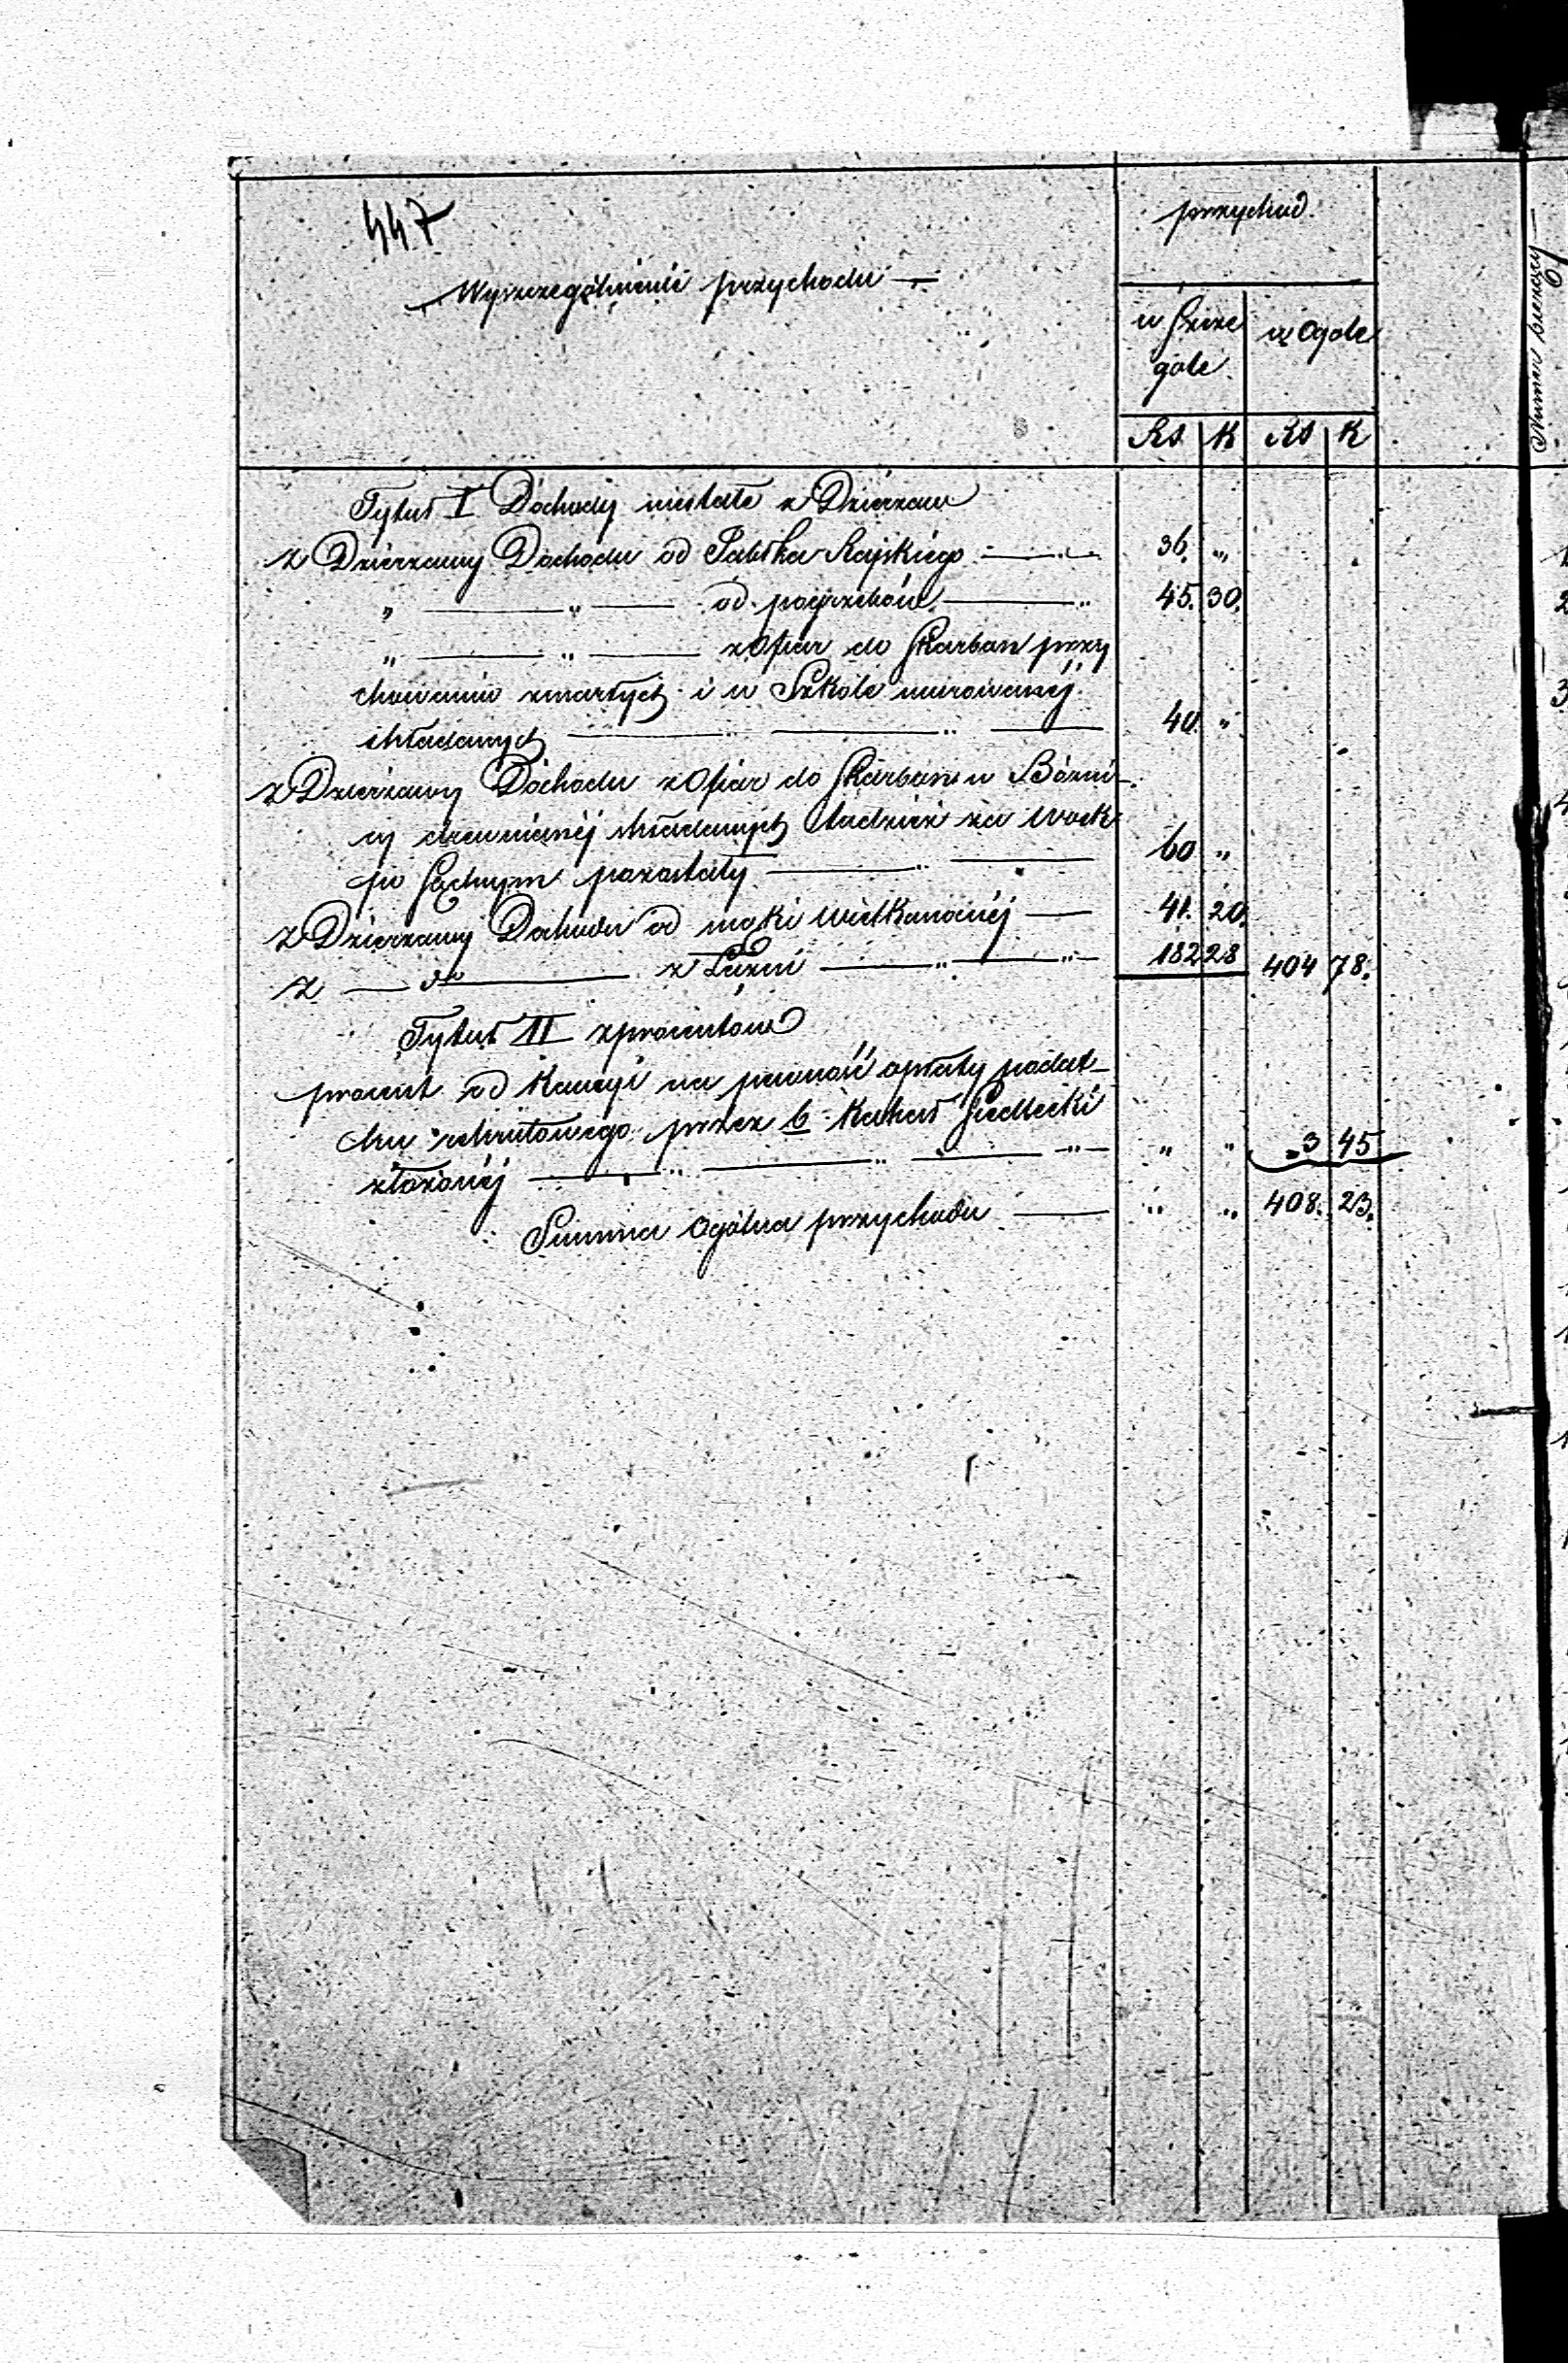 447
Wyszczególnienie przychodu —
przychod.
w szcze
góle
w Ogole
Rs K Rs K
Tytuł I Dochody niestałe z Dzierzaw
z Dzierzawy Dochodu od Jabłka Rajskiego — 36. "
" — " — od pogrzebów — " 45. 30.
" — " — z Ofiar do Skarbon przy
chowaniu zmarłych i w Szkole murowanej
składanych — 40. "
z Dzierzawy Dochodu z Ofiar do Skarbon w Bóżni-
cy drewnianéj składanych tudzież za
po pozostały — 60 "
z Dzierzawy Dochodu od mąki Wielkanocnéj — 41. 20.
z — do — z Łaźni — 182 28 404 78.
Tytuł II z procentów
procent od Kaucyi na pewność opłaty podat-
ku rekrutowego przez b. Kahał Siedlecki
złożonéj — " " 3 45
Summa Ogólna przychodu — " " 408. 23.
Numer bieżący —